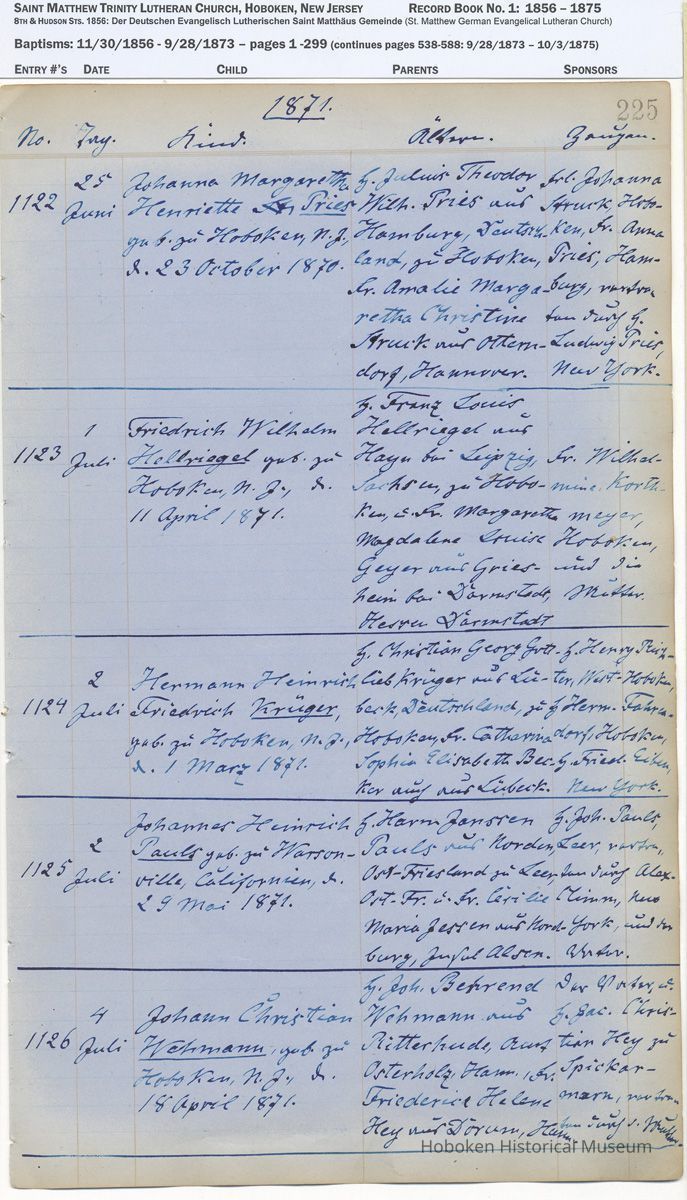 SAINT MATTHEW TRINITY LUTHERAN CHURCH, HOBOKEN, NEW JERSEY RECORD BOOK NO. 1: 1856 – 1875
8TH & HUDSON STS. 1856: Der Deutschen Evangelisch Lutherischen Saint Matthäus Gemeinde (St. Matthew German Evangelical Lutheran Church)
Baptisms: 11/30/1856 - 9/28/1873 – pages 1 -299 (continues pages 538-588: 9/28/1873 – 10/3/1875)
ENTRY #'S DATE CHILD PARENTS SPONSORS
1871. 225
No. Tag. Kind. Ältern. Zeugen.
1122
25
Juni
Johanna Margaretha
Henriette Pries
geb. zu Hoboken, N. J.,
d. 23 October 1870.
H. Julius Theodor
Wilh. Pries aus
Hamburg, Deutsch-
land, zu Hoboken,
Fr. Amalie Marga-
retha Christine
Struck aus Ottern-
dorf, Hannover.
Frl. Johanna
Struck, Hobo-
ken, Fr. Anna
Pries, Ham-
burg, vertre-
ten durch H.
Ludwig Pries,
New York.
1123
1
Juli
Friedrich Wilhelm
Hellriegel geb. zu
Hoboken, N. J., d.
11 April 1871.
H. Franz Louis
Hellriegel aus
Hayn bei Leipzig,
Sachsen, zu Hobo-
ken, u. Fr. Margaretha
Magdalene Louise
Geyer aus Gries-
heim bei Darmstadt,
Hessen Darmstadt
Fr. Wilhel-
mine Korth-
meyer,
Hoboken,
und die
Mutter.
1124
2
Juli
Hermann Heinrich
Friedrich Krüger,
geb. zu Hoboken, N. J.,
d. 1 März 1871.
H. Christian Georg Gott-
lieb Krüger aus Lü-
beck, Deutschland, zu
Hoboken, Fr. Catharina
Sophia Elisabeth Bec-
ker auch aus Lübeck.
H. Henry
ter, West-Hoboken,
H. Herm. Fahren-
dorf, Hoboken,
H. Fried.
New York.
1125
2
Juli
Johannes Heinrich
Pauls geb. zu Warson-
ville, Californien, d.
29 Mai 1871.
H. Harm Janssen
Pauls aus Norden,
Ost-Friesland zu Leer,
Ost-Fr. u. Fr. Cecilie
Maria Jessen aus Nord-
burg, Insel Alsen.
H. Joh. Pauls,
Leer, vertre-
ten durch Alex.
Climm, New
York, und der
Vater.
1126
4
Juli
Johann Christian
Wehmann, geb. zu
Hoboken, N. J., d.
18 April 1871.
H. Joh. Behrend
Wehmann aus
Ritterhude, Amt
Osterholz, Hann., Fr.
Friederice Helene
Hey aus Dorum, Hann.
Der Vater, u.
H. Jac. Chris-
tian Hey zu
Spickar-
mann, vertre-
ten durch d.
Hoboken Historical Museum